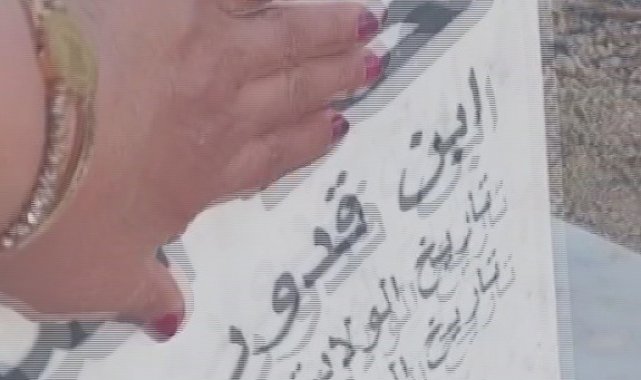 ابن قدور
تاريخ الولادة
تاريخ